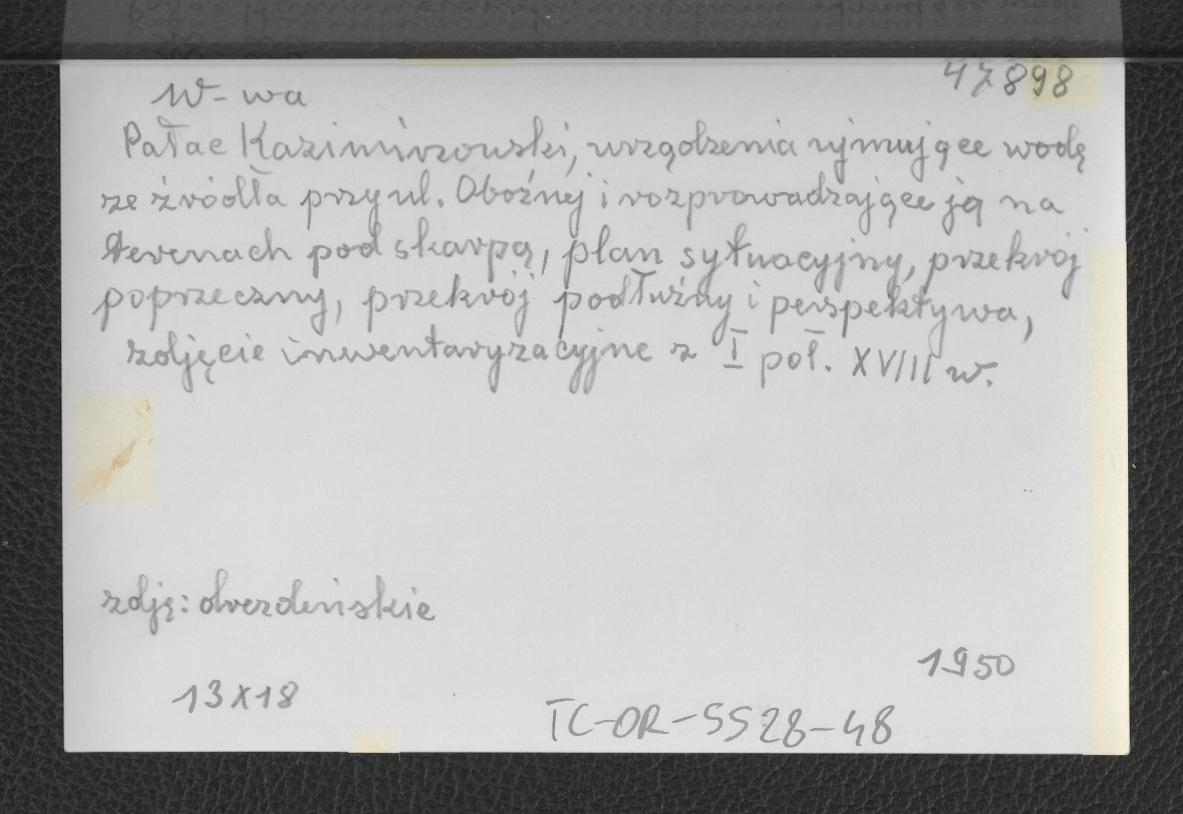 47898
W-wa
Pałac Kazimirzowski, urządzenia ujmujące wodę
ze źródła przy ul. Oboźnej i rozprowadzające ją na
terenach pod skarpą, plan sytuacyjny, przekrój
poprzeczny, przekrój podłużny i perspektywa,
zdjęcie inwentaryzacyjne z I poł. XVIII w.
zdję: drezdeńskie
1950
13x18
TC-OR-5528-48